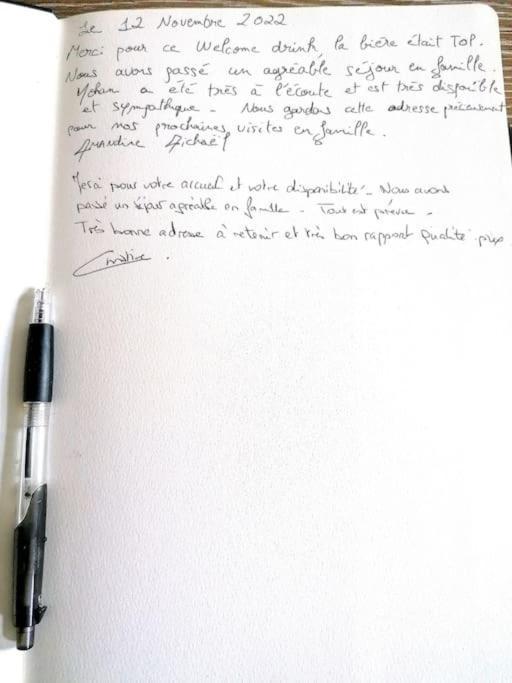 Le 12 Novembre 2022
Merci pour ce Welcome drink, la bière était ToP.
Nous avons passé un agréable séjour en famille.
Yohan a été très à l'écoute et est très disponible
et sympathique - Nous gardons cette adresse précieusement
pour nos prochaines visites en famille.
Amandine Michaël
Merci pour votre accueil et votre disponibilité - Nous avons
passé un séjour agréable en famille - Tout est prévu -
Très bonne adresse à retenir et très bon rapport qualité prix